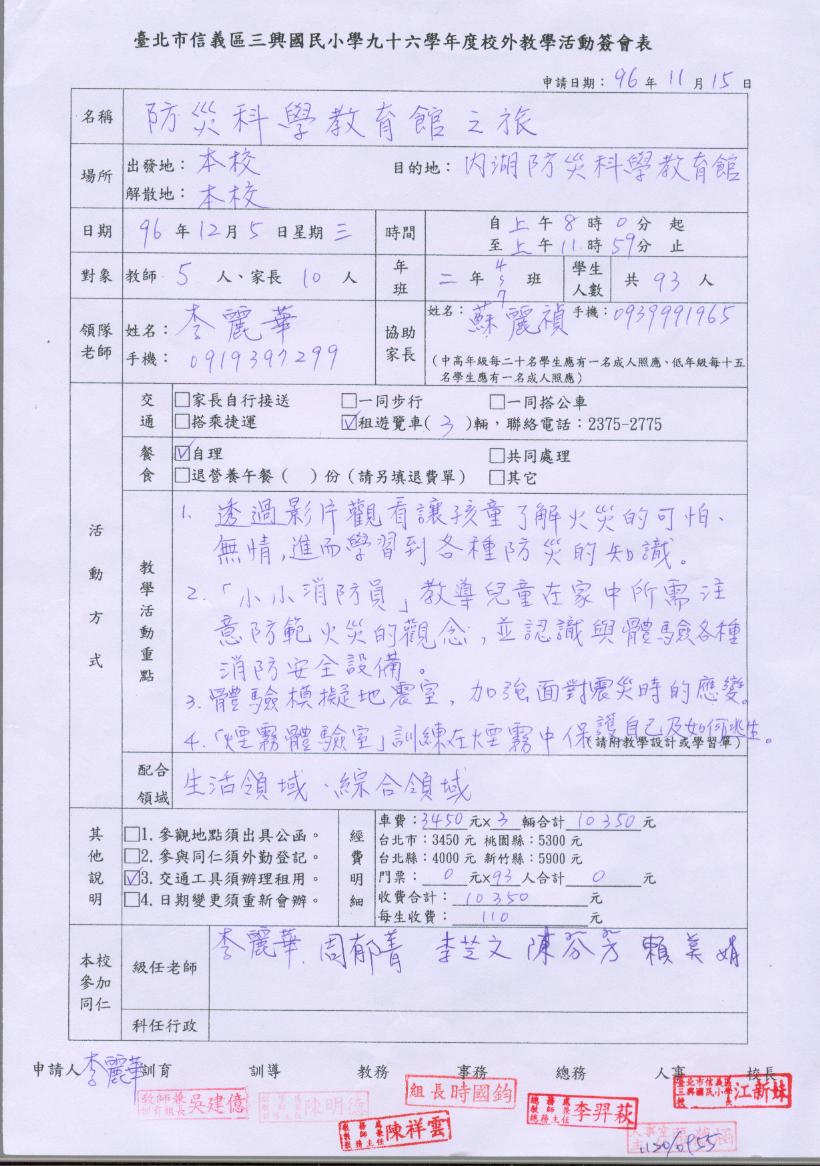 臺北市信義區三興國民小學九十六學年度校外教學活動簽會表
申請日期：96年11月15日
名稱 防災科學教育館之旅
場所 出發地：本校 目的地：內湖防災科學教育館
解散地：本校
日期 96年12月5日星期三 時間 自上午8時0分起
至上午11時59分止
對象 教師5人、家長10人 年班 二年4 5 7班 學生人數 共93人
領隊老師 姓名：李麗華 協助家長 姓名：蘇麗禎 手機：0939991965
手機：0919397299
(中高年級每二十名學生應有一名成人照應、低年級每十五
名學生應有一名成人照應)
活動方式
交通 □家長自行接送 □一同步行 □一同搭公車
□搭乘捷運 ☑租遊覽車(3)輛，聯絡電話：2375-2775
餐食 ☑自理 □共同處理
□退營養午餐( )份(請另填退費單) □其它
教學活動重點
1. 透過影片觀看讓孩童了解火災的可怕、
無情,進而學習到各種防災的知識。
2.「小小消防員」教導兒童在家中所需注
意防範火災的觀念,並認識與體驗各種
消防安全設備。
3. 體驗模擬地震室，加強面對震災時的應變。
4.「煙霧體驗室」訓練在煙霧中保護自己及如何逃生。
(請附教學設計或學習單)
配合領域 生活領域、綜合領域
其他說明
□1.參觀地點須出具公函。
□2.參與同仁須外勤登記。
☑3.交通工具須辦理租用。
□4.日期變更須重新會辦。
經費明細
車費：3450元x3輛合計10350元
台北市：3450元 桃園縣：5300元
台北縣：4000元 新竹縣：5900元
門票：0元x93人合計0元
收費合計：10350元
每生收費：110元
本校參加同仁
級任老師 李麗華 周郁菁 李芝文 陳芬芳 賴美娟
科任行政
申請人 李麗華 訓育 訓導 教務 事務 總務 人事 校長
教師兼訓育組長 吳建億
陳明德
教務處教師兼教務主任 陳祥雲
組長時國鈞
總務處教師兼總務主任 李羿萩
臺北市信義區三興國民小學校長 江新妹
1120/0955